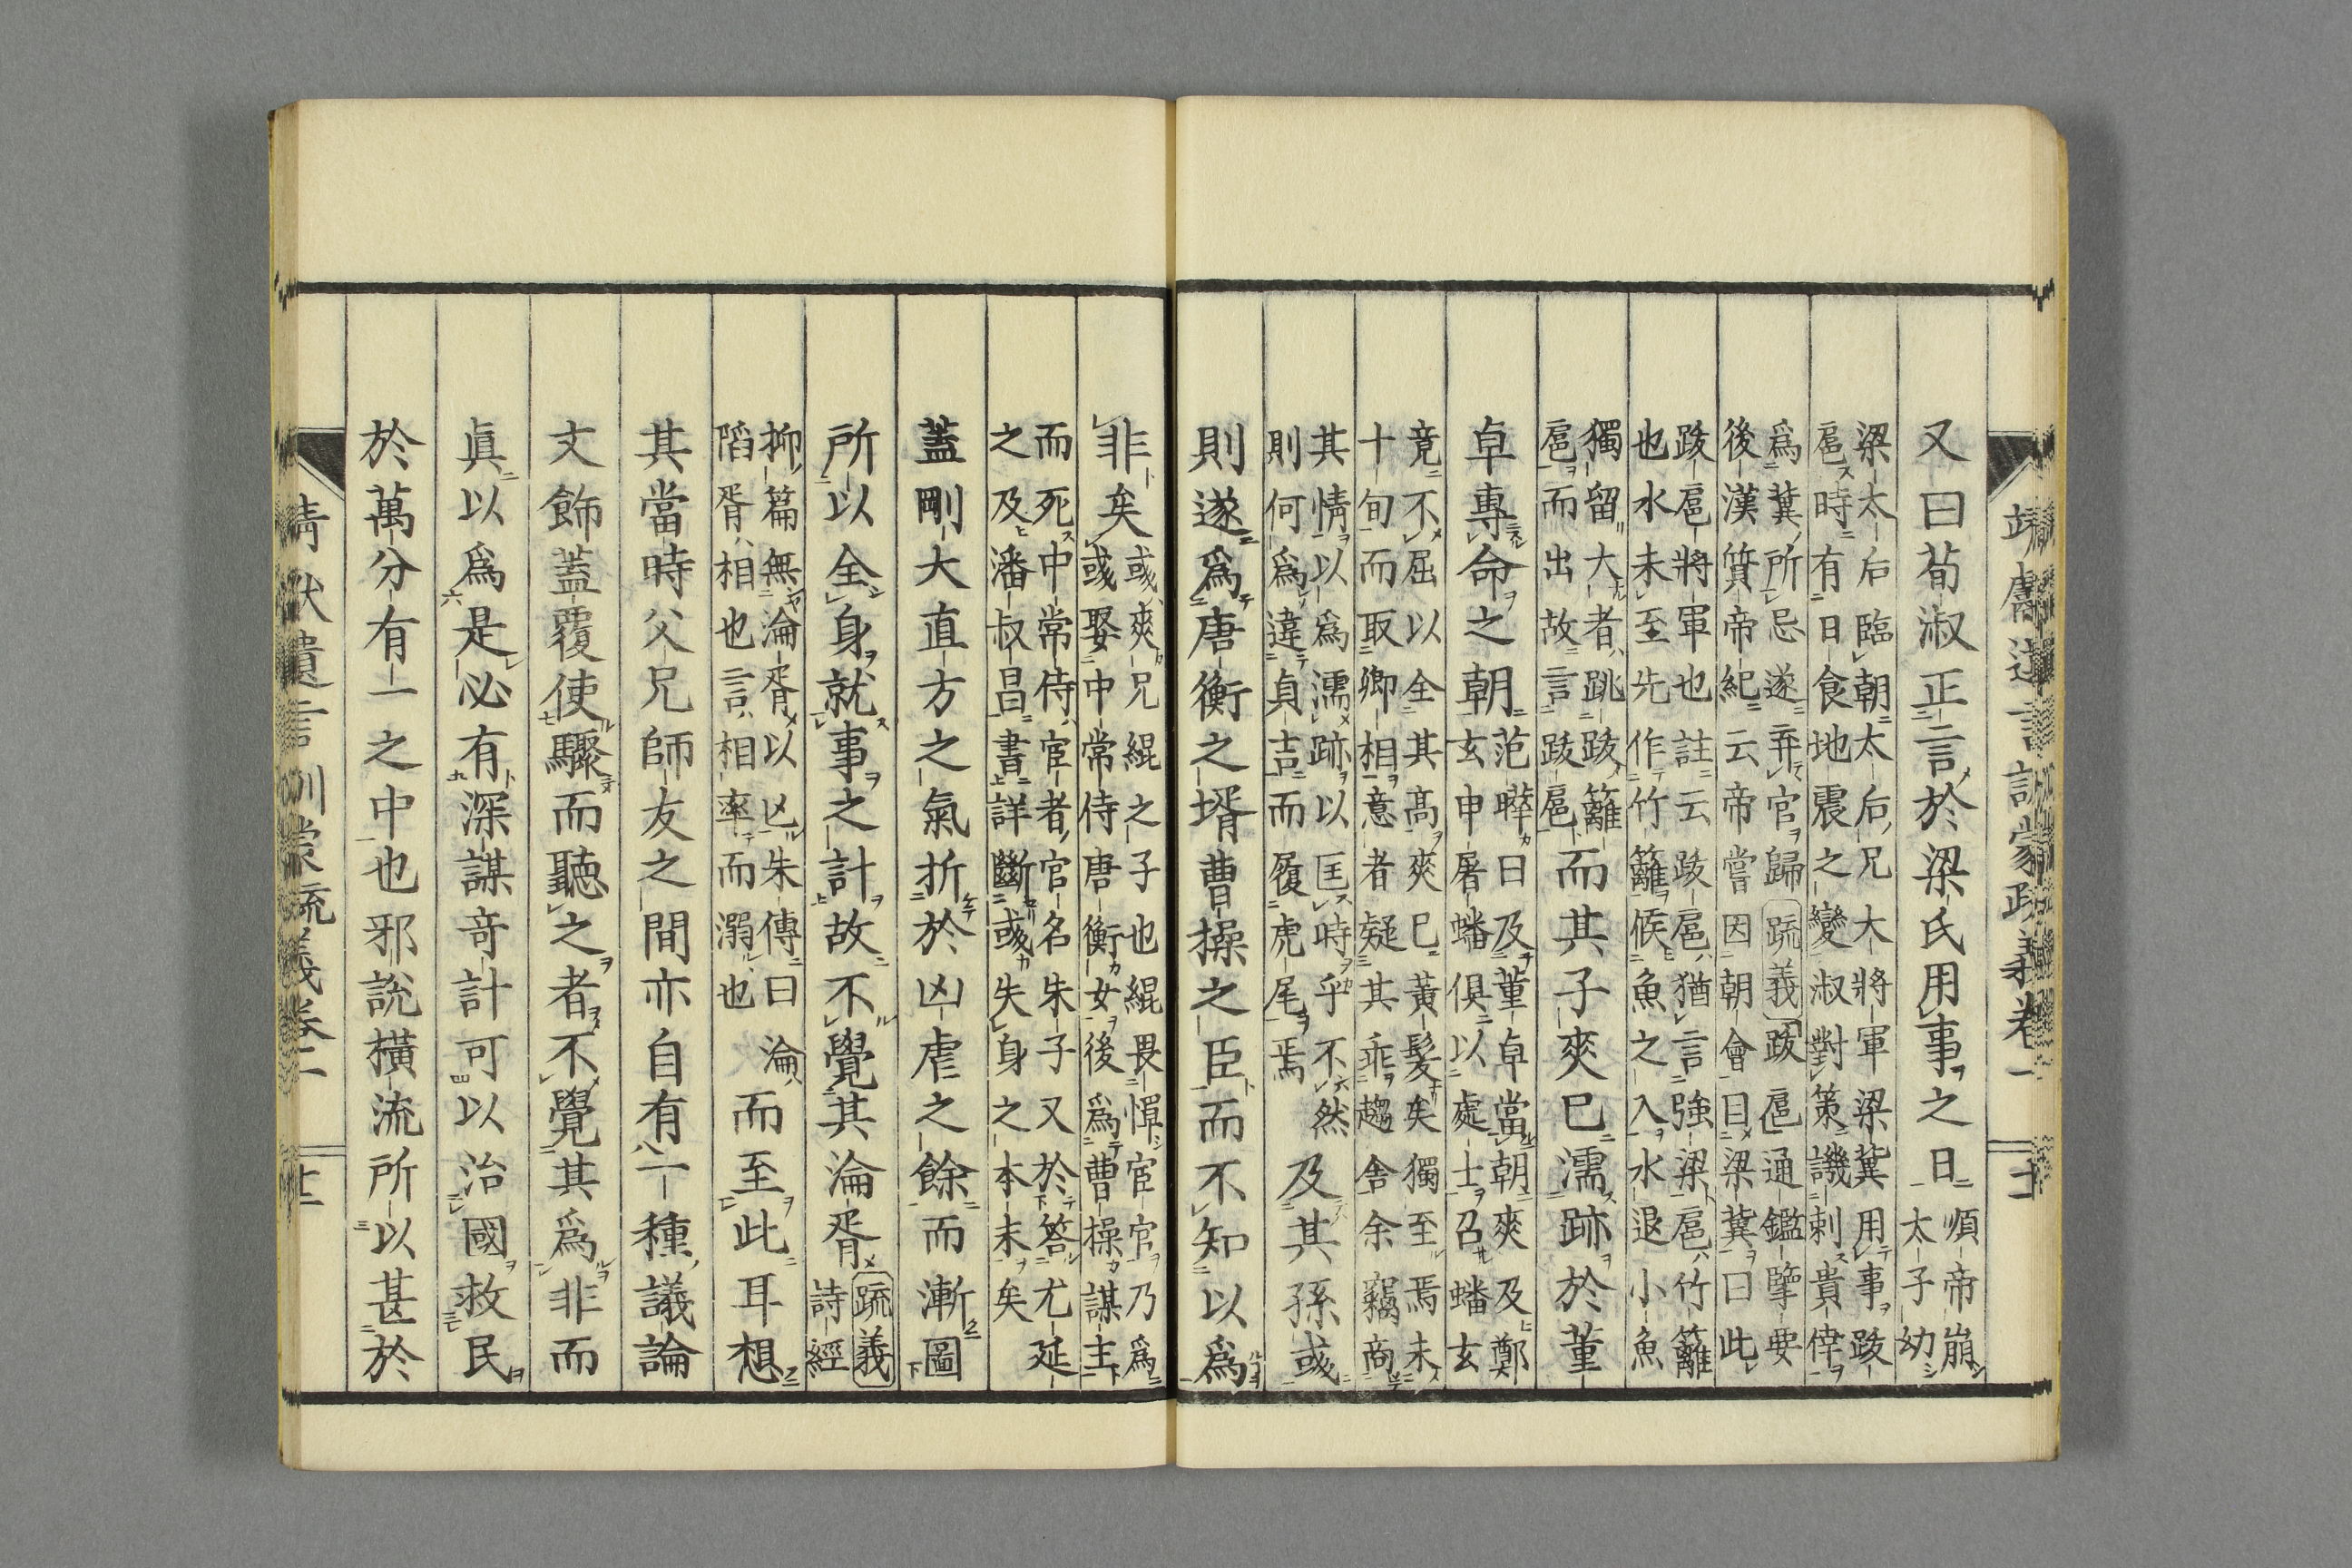 靖獻遺言訓蒙疏義卷
又曰荀淑正言於梁氏用事之日
順帝崩
太子幼
梁太后臨朝太后兄大將軍梁冀用事跋
扈時有日食地震之變淑對策譏刺貴倖
爲冀所忌遂弃官歸疏義跋扈通鑑擥要
後漢質帝紀云帝嘗因朝會目梁冀曰此
跋扈將軍也註云跋扈猶言強梁扈竹籬
也水未至先作竹籬候魚之入水退小魚
獨留大者跳跋籬
扈而出故言跋扈
而其子爽已濡跡於董
卓專命之朝
范曄曰及董卓當朝爽及鄭
玄申屠蟠俱以處士召蟠玄
竟不屈以全其高爽已黃髮矣獨至焉未
十旬而取卿相意者疑其乖趣舍余竊商
其情以爲濡跡以匡時乎不然
則何爲違貞吉而履虎尾焉
及其孫彧
則遂爲唐衡之壻曹操之臣而不知以爲
非矣
彧爽兄緄之子也緄畏憚宦官乃爲
彧娶中常侍唐衡女後爲曹操謀主
而死中常侍宦者官名朱子又於答尤延
之及潘叔昌書詳斷彧失身之本末矣
蓋剛大直方之氣折於凶虐之餘而漸圖
所以全身就事之計故不覺其淪胥
疏義
詩經
抑篇無淪胥以亾朱傳曰淪
陷胥相也言相率而溺也
而至此耳想
其當時父兄師友之間亦自有一種議論
文飾蓋覆使驟而聽之者不覺其爲非而
眞以爲是必有深謀奇計可以治國救民
於萬分有一之中也邪說橫流所以甚於
靖獻遺言訓蒙疏義卷二